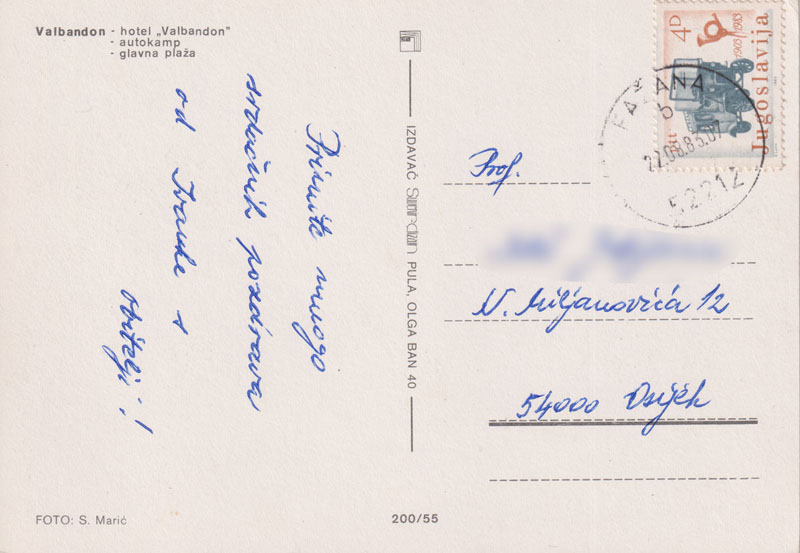 Valbandon - hotel „Valbandon"
- autokamp
- glavna plaža
Primite mnogo
srdačnih pozdrava
od Ivanke s
obitelji!
IZDAVAČ PULA, OLGA BAN 40
4 D
1903/1983
Jugoslavija
FAŽANA
b
22.08.85.07
52212
Prof.
N. Miljanovića 12
54000 Osijek
FOTO: S. Marić
200/55